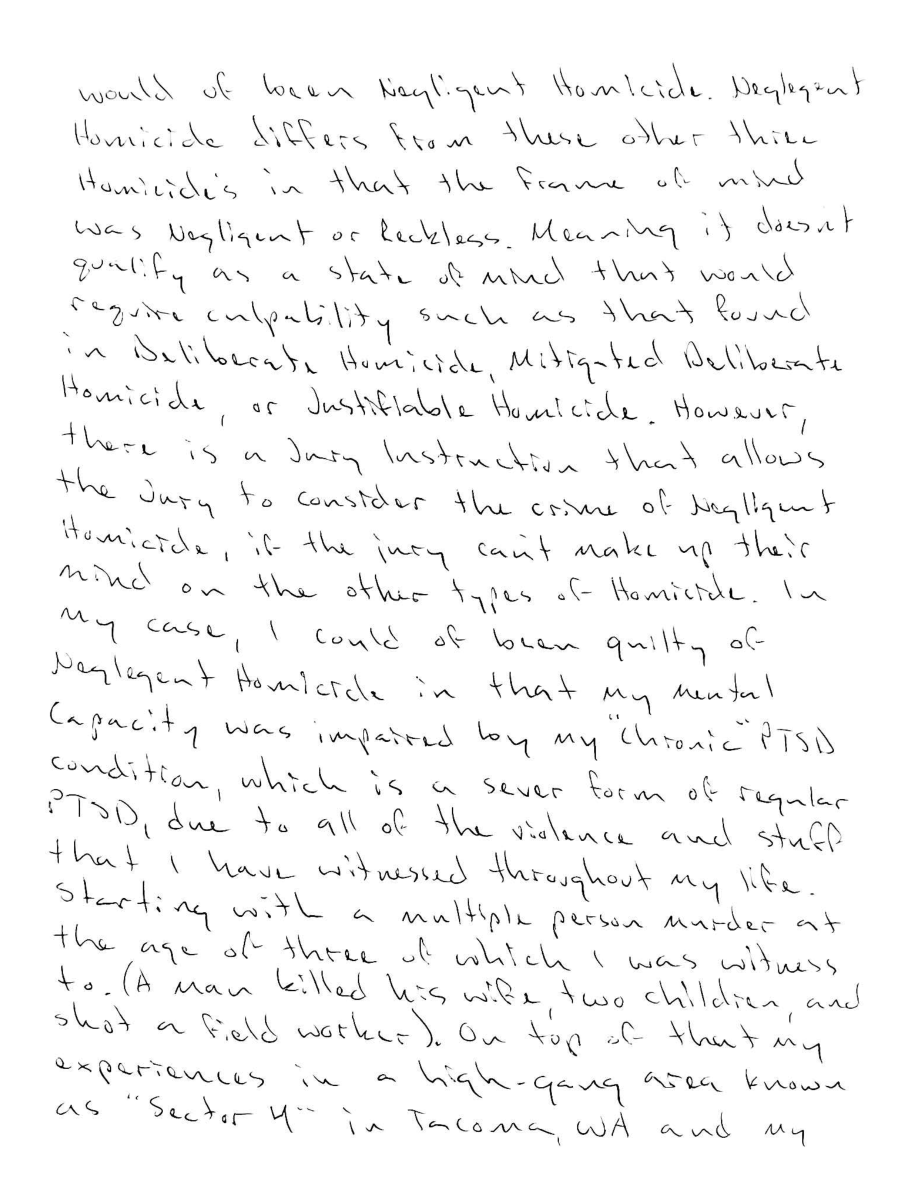 would of been Negligent Homicide. Neglegent
Homicide differs from these other three
Homicide's in that the frame of mind
was Negligent or Reckless. Meaning it doesn't
qualify as a state of mind that would
require culpability such as that found
in Deliberate Homicide, Mitigated Deliberate
Homicide, or Justifiable Homicide. However,
there is a Jury Instruction that allows
the Jury to consider the crime of Negligent
Homicide, if the jury can't make up their
mind on the other types of Homicide. In
my case, I could of been guilty of
Neglegent Homicide in that my mental
Capacity was impaired by my "Chronic" PTSD
condition, which is a sever form of regular
PTSD, due to all of the violence and stuff
that I have witnessed throughout my life.
Starting with a multiple person murder at
the age of three of which I was witness
to. (A man killed his wife, two children, and
shot a field worker). On top of that my
experiences in a high-gang area known
as "Sector 4" in Tacoma, WA and my